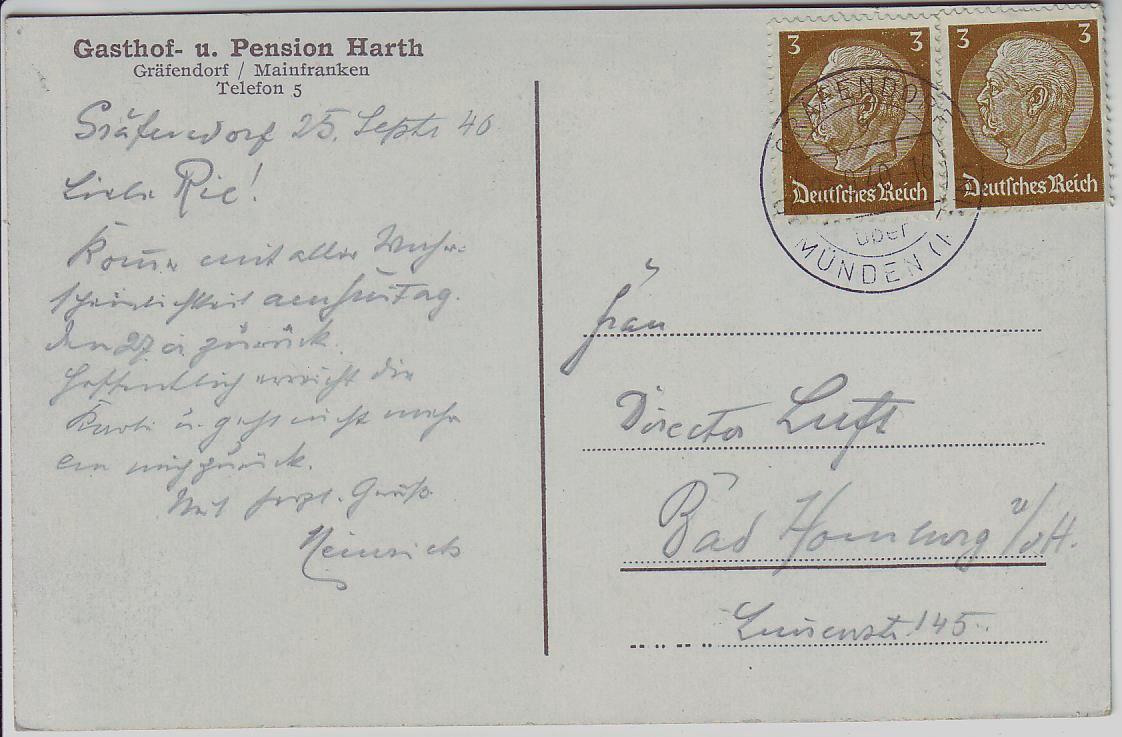 Gasthof- u. Pension Harth
Gräfendorf / Mainfranken
Telefon 5
Gräfendorf 25. Septr 40
Liebe Rie!
Komme mit aller Wahr-
scheinlichkeit am Freitag.
den 27 zurück.
Hoffentlich erreicht die
Karte u. geht nicht mehr
an mich zurück.
Mit herzl. Gruß
Heinrich
3 3
Deutsches Reich
3 3
Deutsches Reich
über
MÜNDEN
Frau
Director Luft
Bad Homburg v/dH.
Luisenstr 145